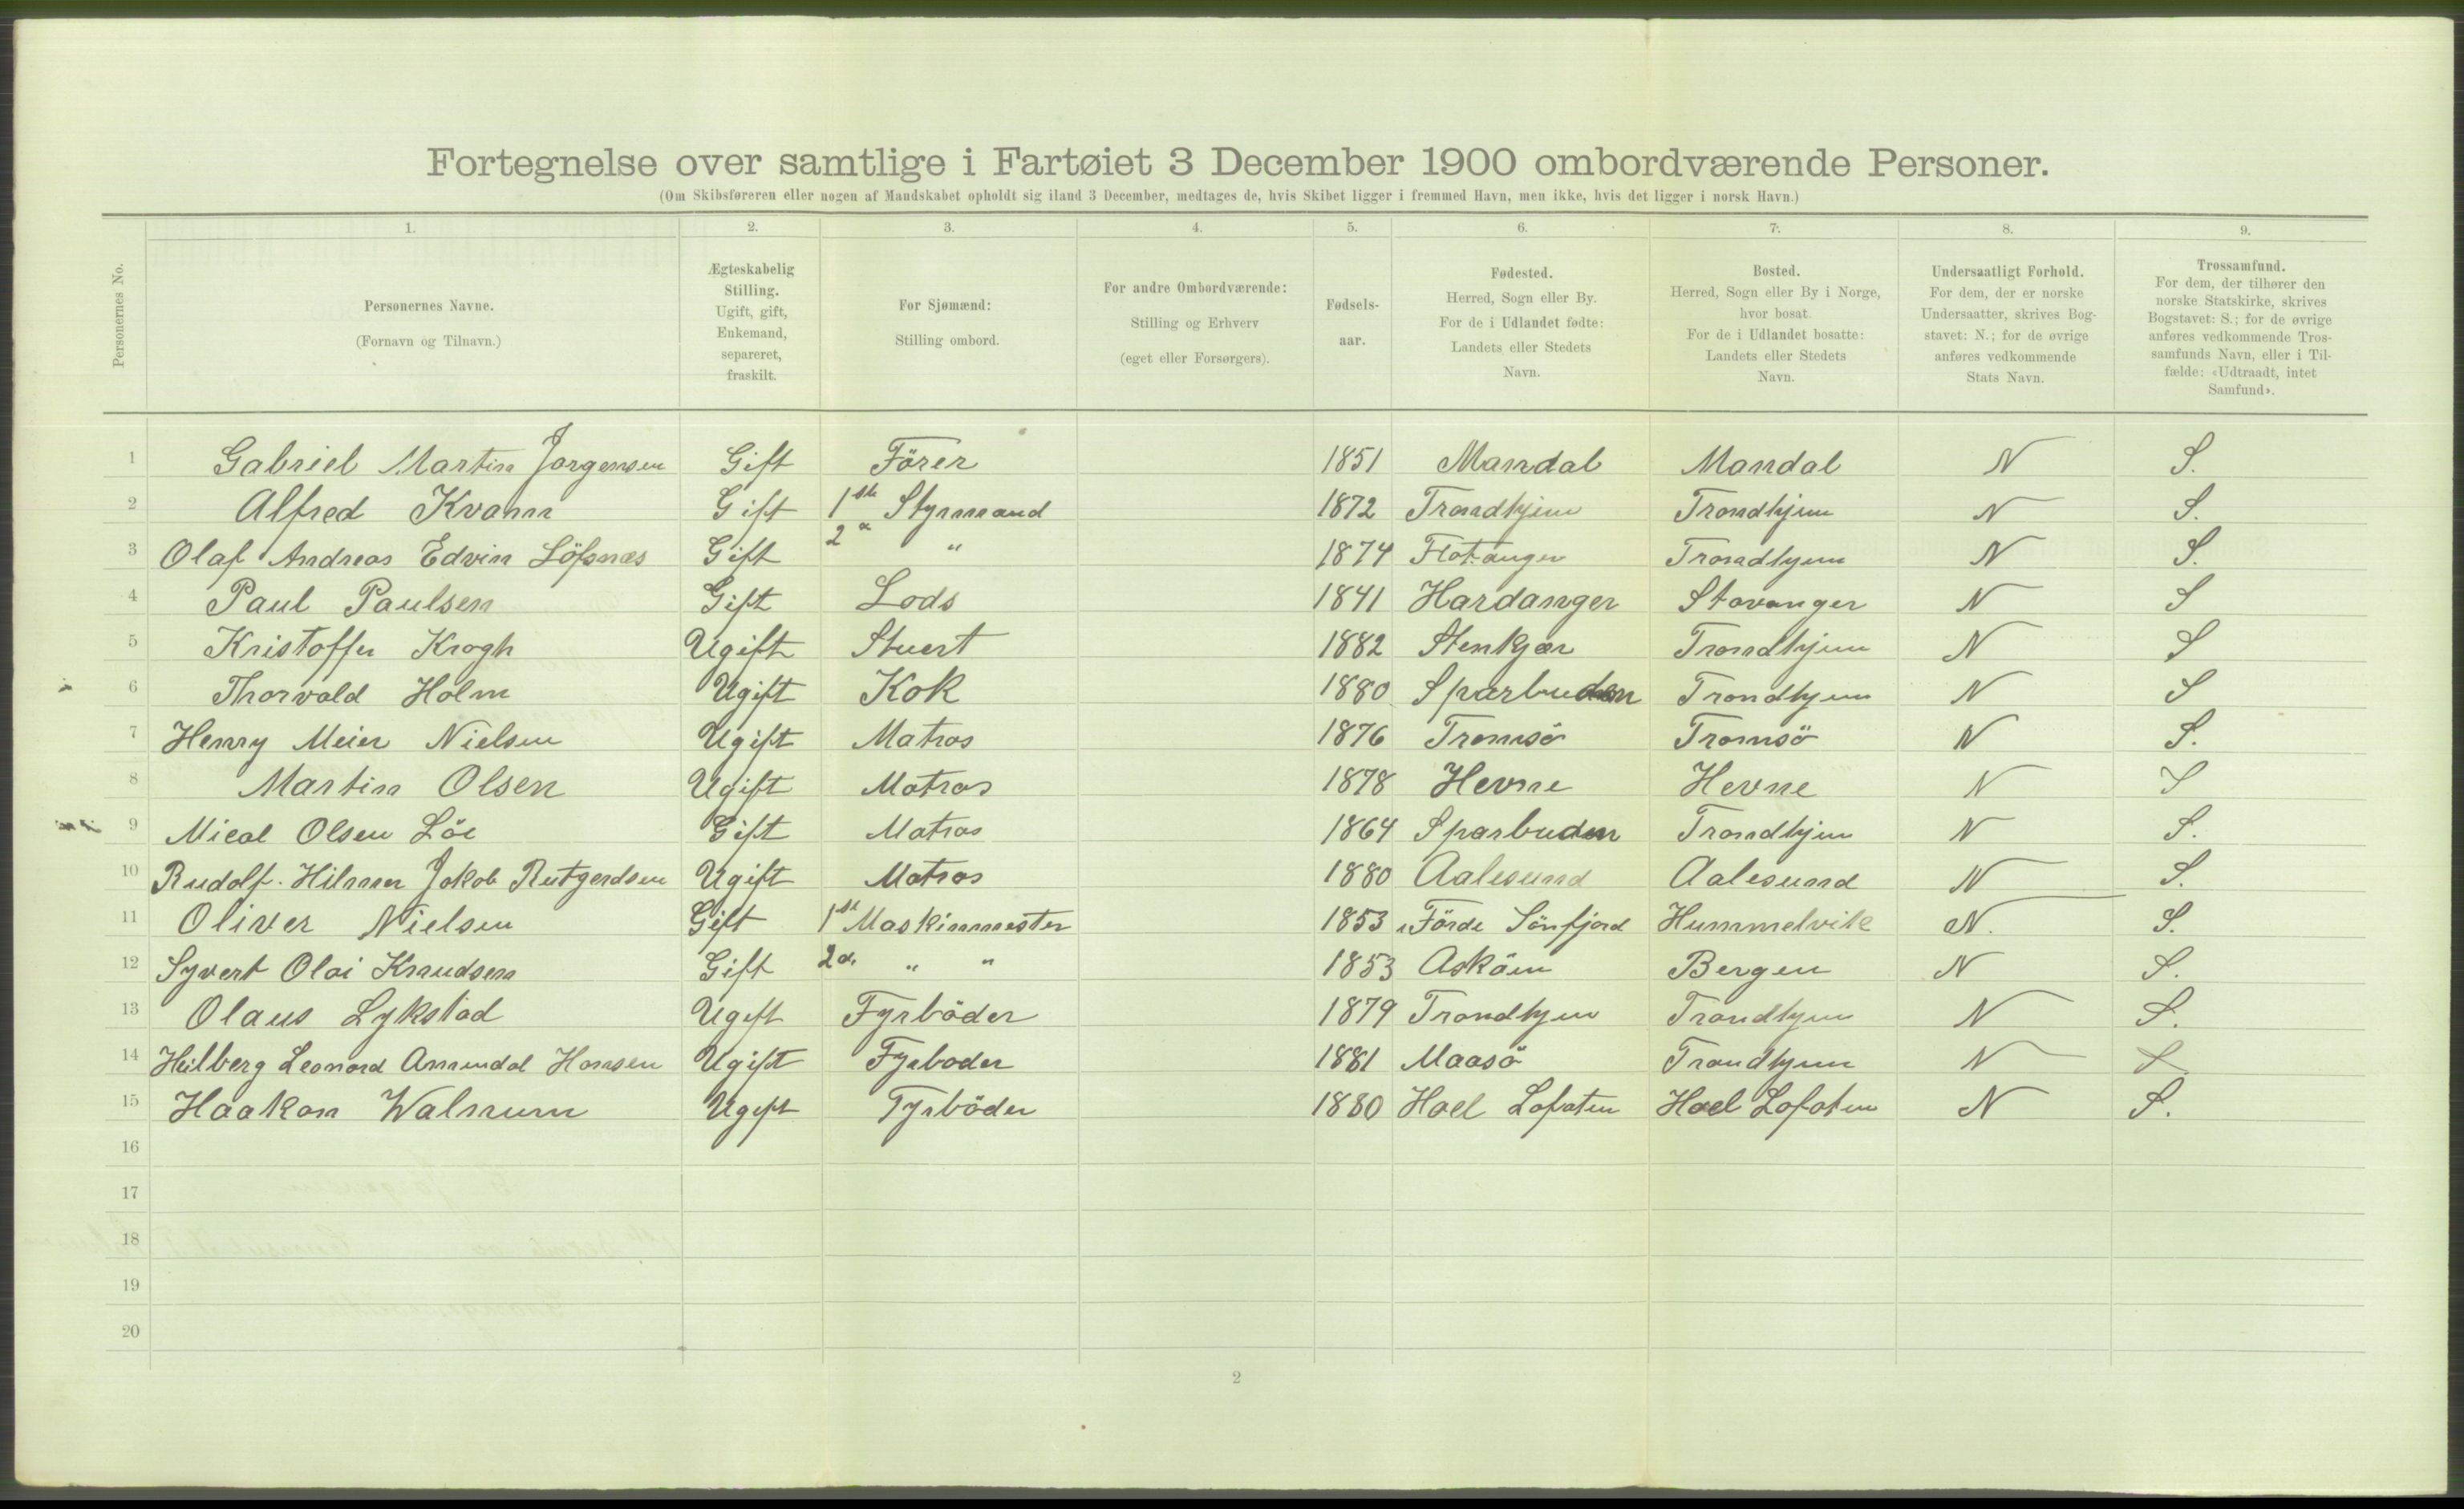 Fortegnelse over samtlige i Fartøiet 3 December 1900 ombordværende Personer.
(Om Skibsføreren eller nogen af Mandskabet opholdt sig iland 3 December, medtages de, hvis Skibet ligger i fremmed Havn, men ikke, hvis det ligger i norsk Havn.)
Personernes No.
1. 2. 3. 4. 5. 6. 7. 8. 9.
Personernes Navne.
(Fornavn og Tilnavn.)
Ægteskabelig
Stilling.
Ugift, gift,
Enkemand,
separeret,
fraskilt.
For Sjømænd:
Stilling ombord.
For andre Ombordværende:
Stilling og Erhverv
(eget eller Forsørgers).
Fødsels-
aar.
Fødested.
Herred, Sogn eller By.
For de i Udlandet fødte:
Landets eller Stedets
Navn.
Bosted.
Herred, Sogn eller By i Norge,
hvor bosat.
For de i Udlandet bosatte:
Landets eller Stedets
Navn.
Undersaatligt Forhold.
For dem, der er norske
Undersaatter, skrives Bog-
stavet: N.; for de øvrige
anføres vedkommende
Stats Navn.
Trossamfund.
For dem, der tilhører den
norske Statskirke, skrives
Bogstavet: S.; for de øvrige
anføres vedkommende Tros-
samfunds Navn, eller i Til-
fælde: «Udtraadt, intet
Samfund».
1 Gabriel Martin Jorgensen Gift Förer 1851 Mandal Mandal N S.
2 Alfred Kvam Gift 1ste Styrmand 1872 Trondhjem Trondhjem N S.
3 Olaf Andreas Edvin Löfsnæs Gift 2n " 1874 Flotanger Trondhjem N S.
4 Paul Paulsen Gift Lods 1841 Hardanger Stavanger N S
5 Kristoffer Krogh Ugift Stuert 1882 Stenkjær Trondhjem N S
6 Thorvald Holm Ugift Kok 1880 Sparbuden Trondhjem N S
7 Henry Meier Nielsen Ugift Matros 1876 Tromsö Tromsö N S.
8 Martin Olsen Ugift Matros 1878 Hevne Hevne N S
9 Micael Olsen Löe Gift Matros 1864 Sparbuden Trondhjem N S.
10 Rudolf Hilmar Jakob Rutgerdsen Ugift Matros 1880 Aalesund Aalesund N S.
11 Oliver Nielsen Gift 1st Maskinmester 1853 Förde Sönfjord Hummelvik N. S.
12 Syvert Olai Knudsen Gift 2d. " " 1853 Asköen Bergen N S.
13 Olaus Lykstad Ugift Fyrböder 1879 Trondhjem Trondhjem N S.
14 Heilberg Leonard Amundal Hansen Ugift Fyrboder 1881 Maasö Trondhjem N S
15 Haakon Walnum Ugift Fyrböder 1880 Hael Lofoten Hael Lofoten N S.
16
17
18
19
20
2